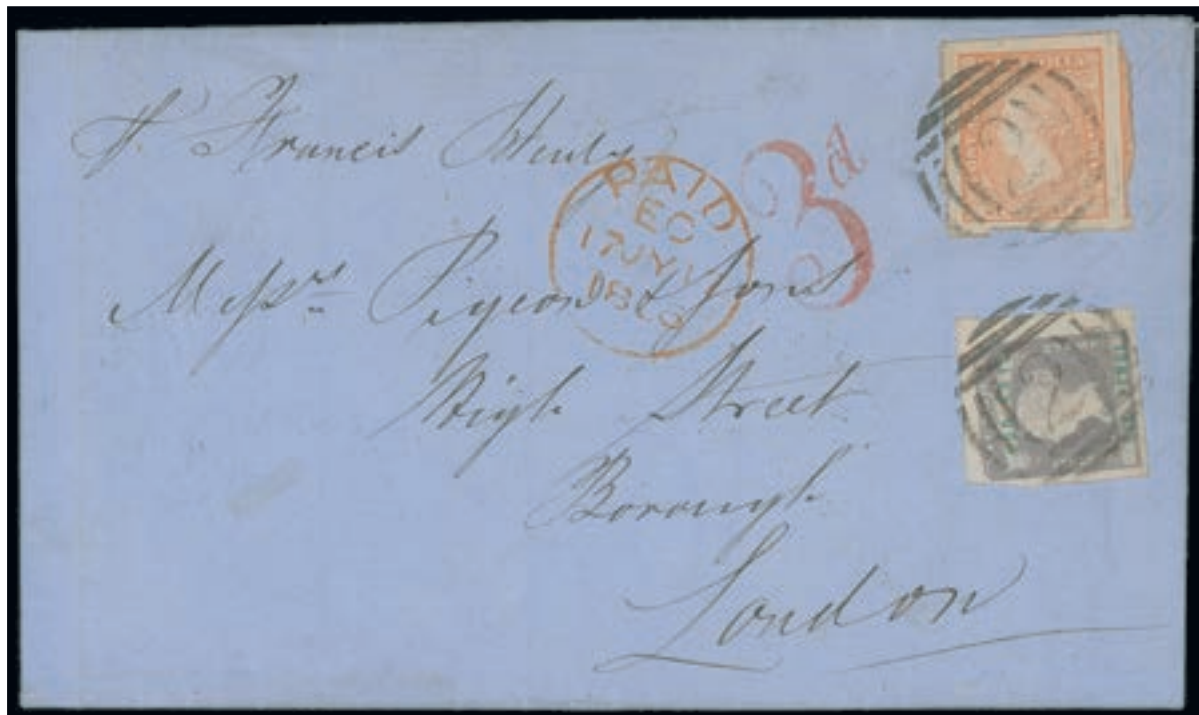 Francis Henly
3d
PAID
EC
17 JY
Messrs Pigeon & Sons
High Street
Borough
London